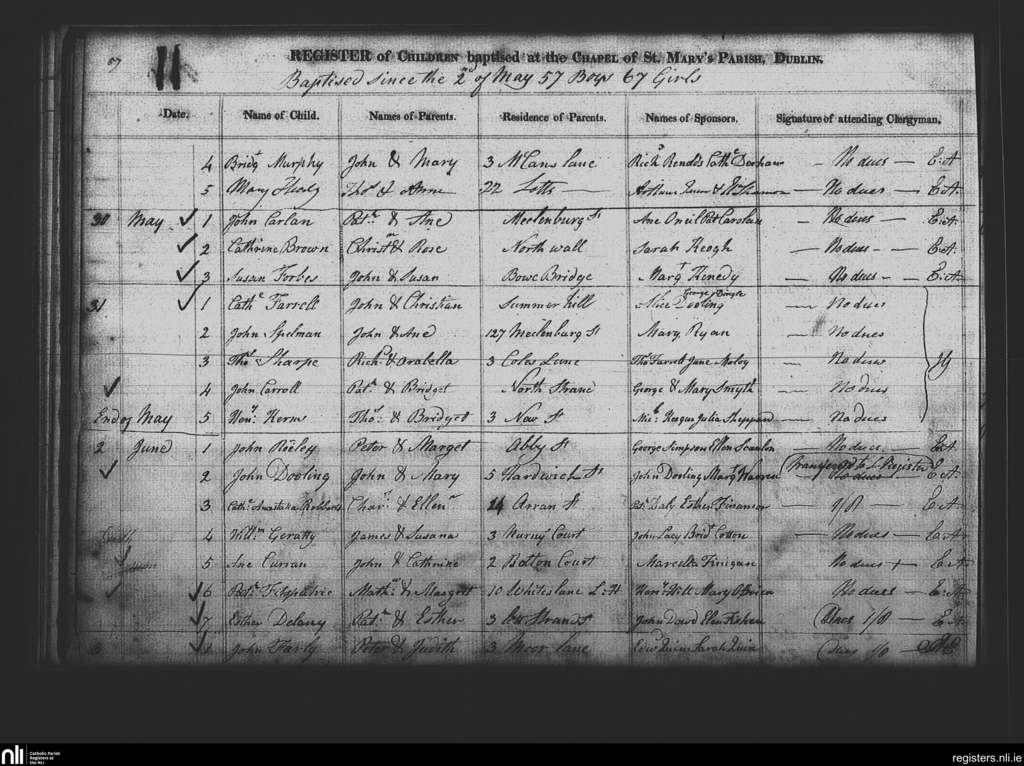 11
REGISTER of CHILDREN baptised at the CHAPEL of ST. MARY'S PARISH, DUBLIN.
Baptised since the 2d of May 57 Boys 67 Girls
Date. Name of Child. Names of Parents. Residence of Parents. Names of Sponsors. Signature of attending Clergyman.
4 Bridt Murphy John & Mary 3 McCans lane Richd Cathe No dues E. A
5 Mary Thos & Anne 22 Lotts No dues E. A.
30 May 1 John Carlan Patk & Ane Mecklenburg St Ane Oneil Pat Carolan No dues E. A.
2 Cathrine Brown Christn & Rose North wall Sarah Keogh No dues E. A.
3 Susan Forbes John & Susan Bowe Bridge Margt Kenedy No dues E. A.
31 1 Cathe Farrell John & Christian Summer hill Alice Dooling George Dingle No dues
2 John Spelman John & Ane 127 Mecklenburg St Mary Ryan No dues
3 Thos Sharpe Richd & Orabella 3 Coles Lane Thos Farrell Jane Moloy No dues
4 John Carroll Patk & Bridget North Strane George & Mary Smyth No dues
End of May 5 Heny Kerns Thos & Bridget 3 New St Micl Keegan Julia Sheppard No dues
2 June 1 John Reeley Peter & Marget Abby St George Simpson Ellen Scanlon No dues E. A.
Transferred to L Register
2 John Dooling John & Mary 5 Hardwick St John Dooling Margt Warren No dues E. A.
3 Cathe Anastatia Chars & Ellen 14 Arran St Patk Daly Esther Finamor 1/8 E. A
4 Willm Geratty James & Susana 3 Murny Court John Lacy Bridt Cotton No dues E. A.
5 Ane Curran John & Cathrine 2 Bolton Court Marcella Finigan No dues + E. A
6 Patk Fitzpatric Mathw & Margret 10 Whites lane Heny Hill Mary O'Brien No dues E. A
7 Esther Delany Patk & Esther 3 Strand St John Dowd Elen Dues 1/8 E. A.
1 John Farly Peter & Judith 3 Moor lane Edwd Quinn Sarah Quin Dues
nli
Catholic Parish
Registers at
the NLI
registers.nli.ie